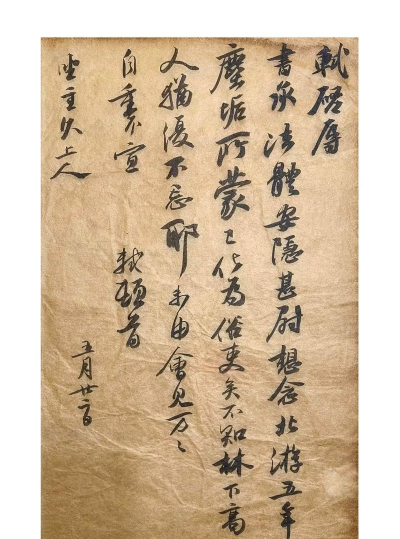 軾啓辱
書承法體安隱甚尉想念北游五年
塵垢所蒙已化為俗吏矣不知林下高
人猶復不忘耶未由會見万〻
自重不宣
軾頓首
坐主久上人
五月廿二日